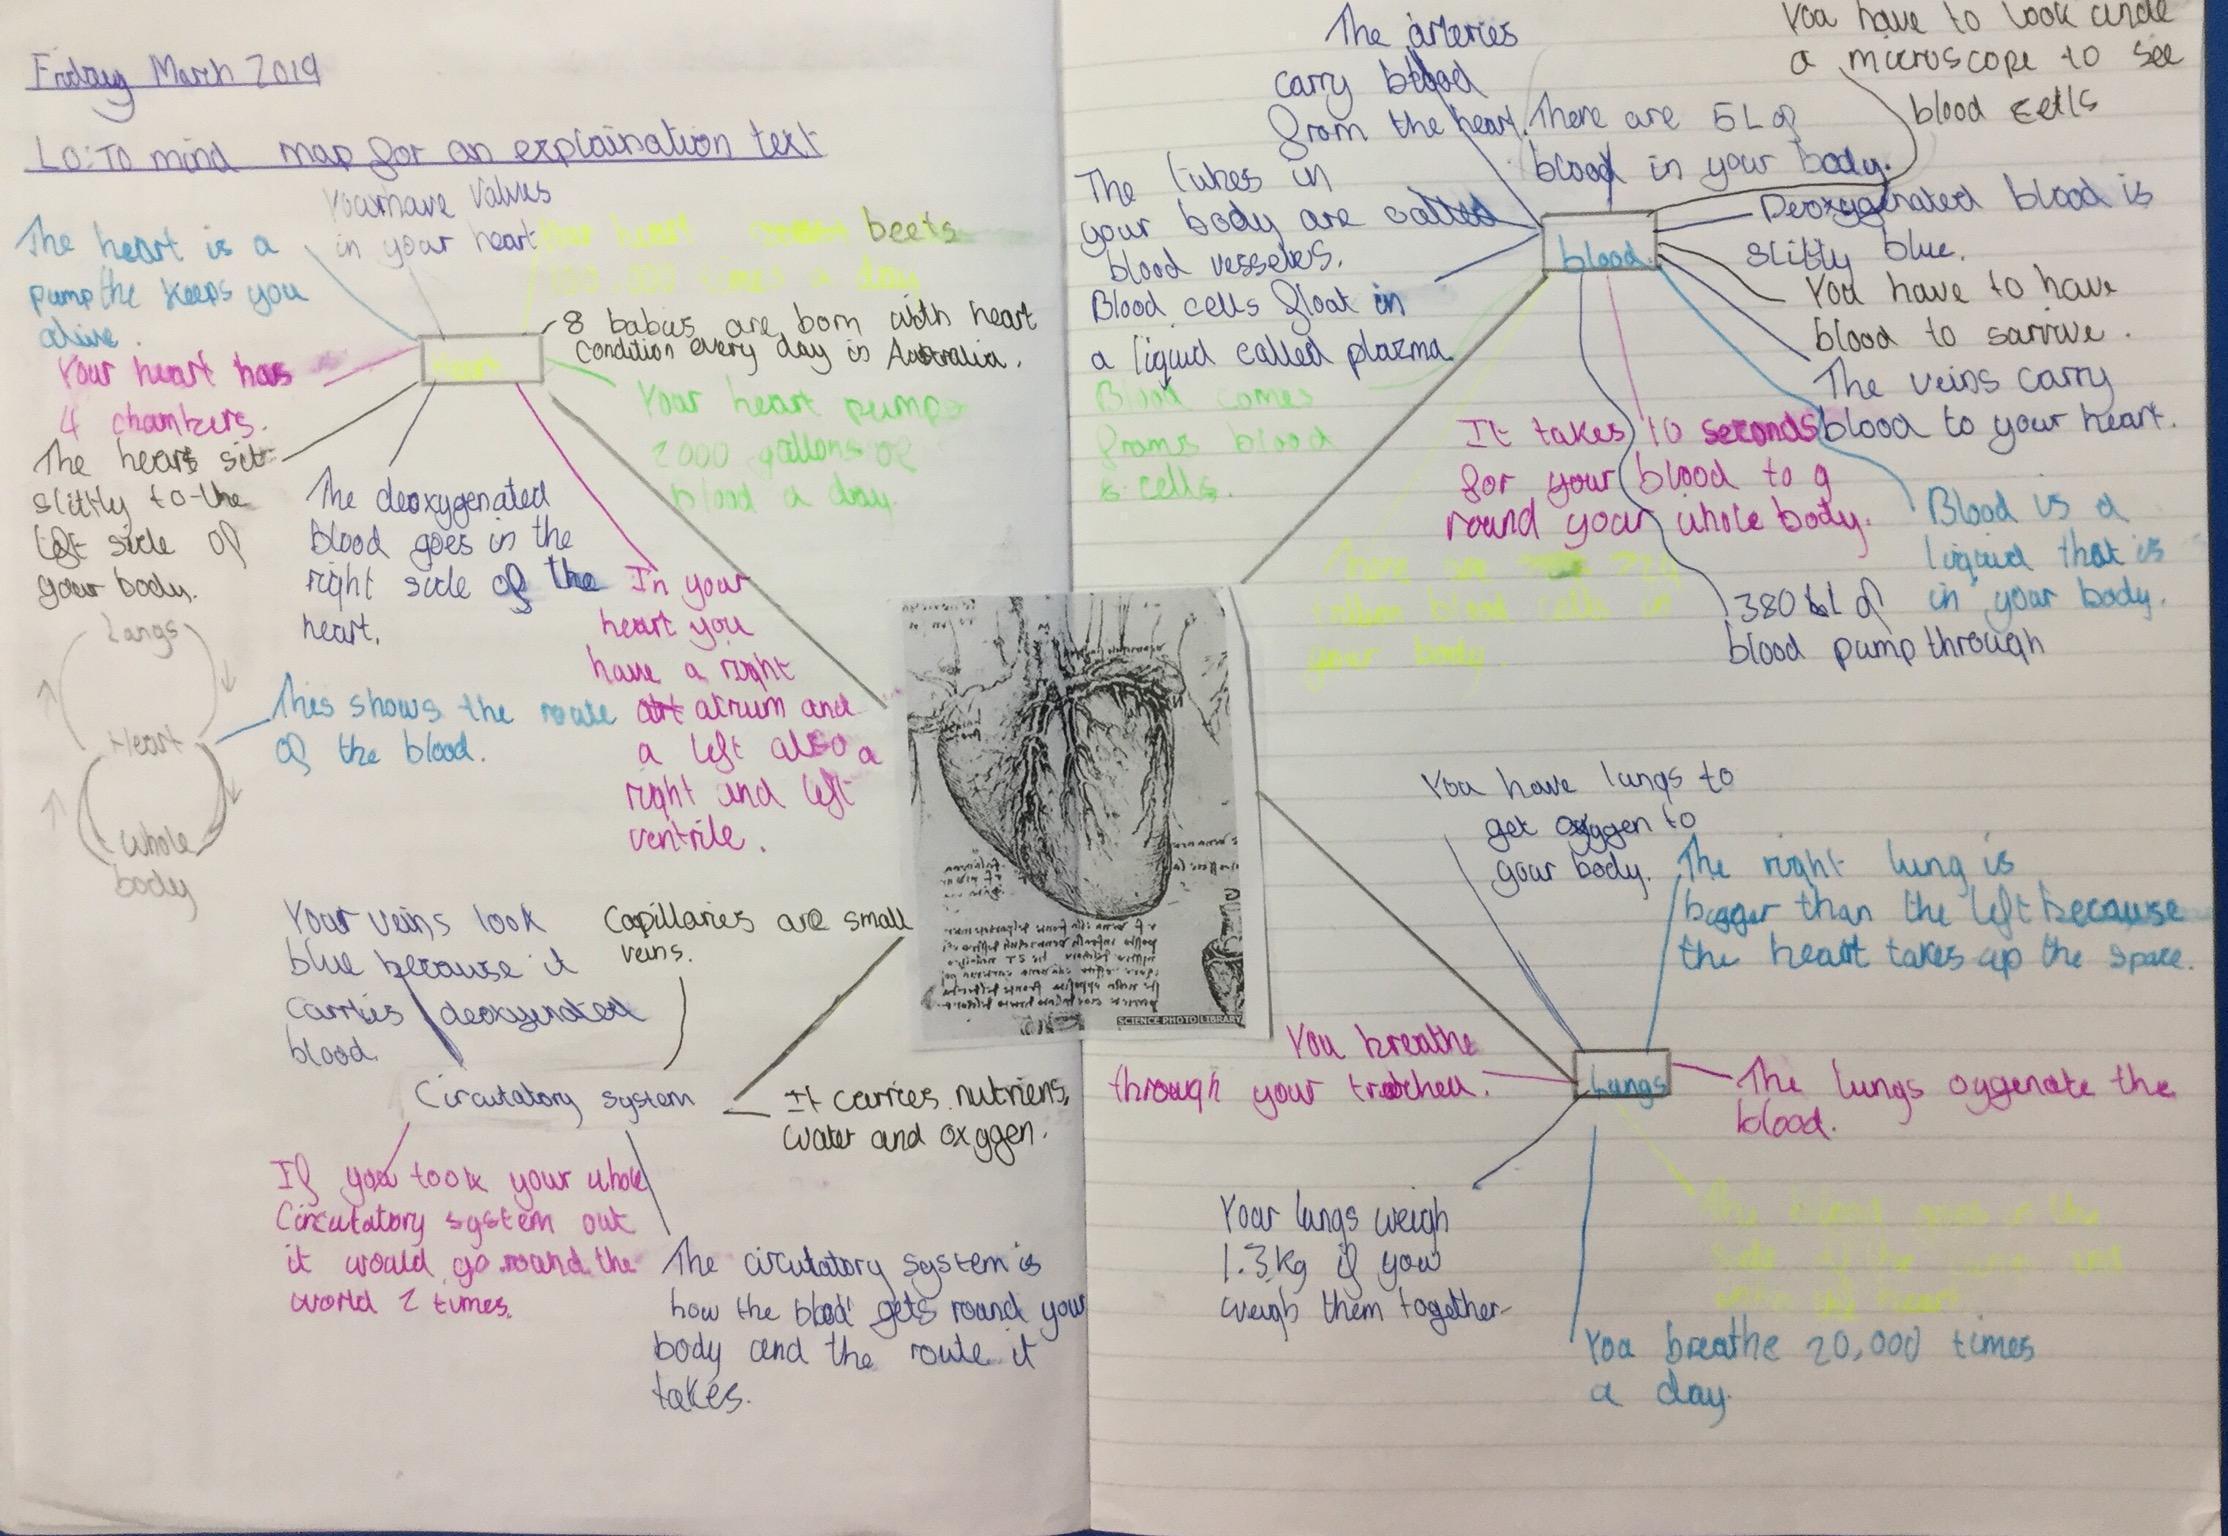 Friday March 2019
LO: To mind map for an explaination text
You have valves
in your heart
The heart is a
pump the keeps you
alive.
Your heart beets
100,000 times a day
Heart
8 babies are born with heart
condition every day in Australia.
Your heart has
4 chambers.
Your heart pumps
2000 gallons of
blood a day.
The heart sit
slittly to the
left side of
your body.
The deoxygenated
blood goes in the
right side of the
heart.
In your
heart you
have a right
atrium and
a left also a
right and left
ventrile.
Lungs
Heart
Whole
body
This shows the route
of the blood.
Your veins look
blue because it
carries deoxygenated
blood.
Capillaries are small
veins.
Circutatory system
It carries nutriens,
water and oxygen.
If you took your whole
Circutatory system out
it would go round the
world 2 times.
The circutatory system is
how the blood gets round your
body and the route it
takes.
SCIENCE PHOTO LIBRARY
The arteries
carry blood
from the heart.
There are 5L of
blood in your body.
You have to look unde
a microscope to see
blood cells
The tubes in
your body are called
blood vesseles.
blood
Deoxygenated blood is
slittly blue.
Blood cells float in
a liquid called plazma.
You have to have
blood to survive.
Blood comes
from blood
cells.
The veins carry
blood to your heart.
It takes 10 seconds
for your blood to g
round your whole body.
Blood is a
liquid that is
in your body.
There are
trillion blood cells in
your body.
380 L of
blood pump through
You have lungs to
get oxygen to
your body.
The right lung is
bigger than the left because
the heart takes up the space.
You breathe
through your trachea.
Lungs
The lungs oxygenate the
blood.
Your lungs weigh
1.3kg if you
weigh them together.
The blood goes in the
You breathe 20,000 times
a day.